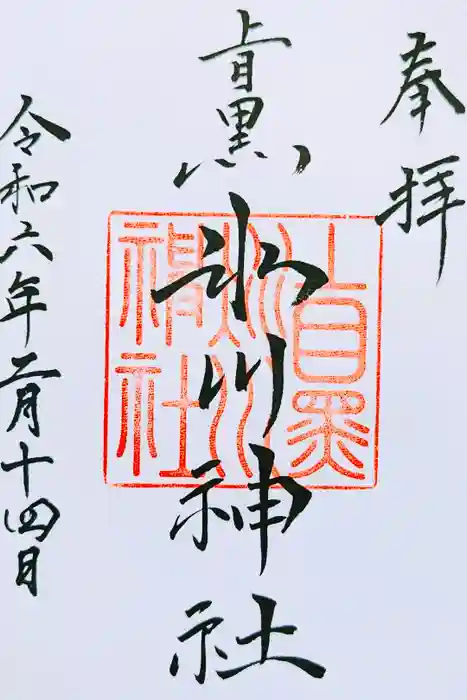 奉拝
上目黒氷川神社
令和六年二月十四日
上目黒
氷川
神社